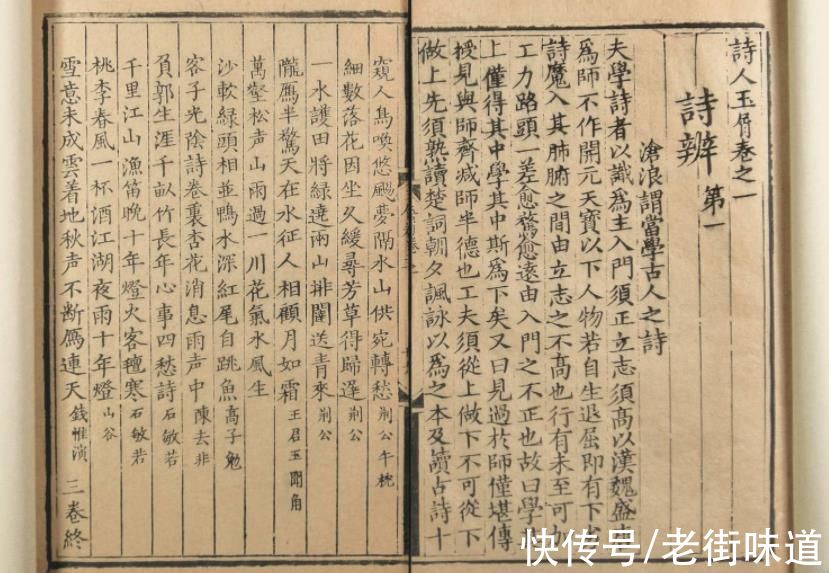 詩人玉屑卷之一
詩辨 第一
滄浪謂當學古人之詩
夫學詩者以識為主入門須正立志須高以漢魏盛
為師不作開元天寶以下人物若自生退屈即有下
詩魔入其肺腑之間由立志之不高也行有未至可加
工力路頭一差愈騖愈遠由入門之不正也故曰學
上僅得其中學其中斯為下矣又曰見過於師僅堪傳
授見與師齊減師半德也工夫須從上做下不可從下
做上先須熟讀楚詞朝夕諷詠以為之本及讀古詩十
窺人鳥喚悠颺夢隔水山供宛轉愁 荆公午枕
細數落花因坐久緩尋芳草得歸遲 荆公
一水護田將綠遶兩山排闥送青來 荆公
隴鴈半驚天在水征人相顧月如霜 王君玉聞角
萬壑松声山雨過一川花氣水風生
沙軟綠頭相並鴨水深紅尾自跳魚 高子勉
客子光陰詩卷裏杏花消息雨声中 陳去非
負郭生涯千畝竹長年心事四愁詩 石敏若
千里江山漁笛晚十年燈火客氊寒 石敏若
桃李春風一杯酒江湖夜雨十年燈 山谷
雪意未成雲着地秋声不断鴈連天 錢惟演 三卷終
快传号/老街味道